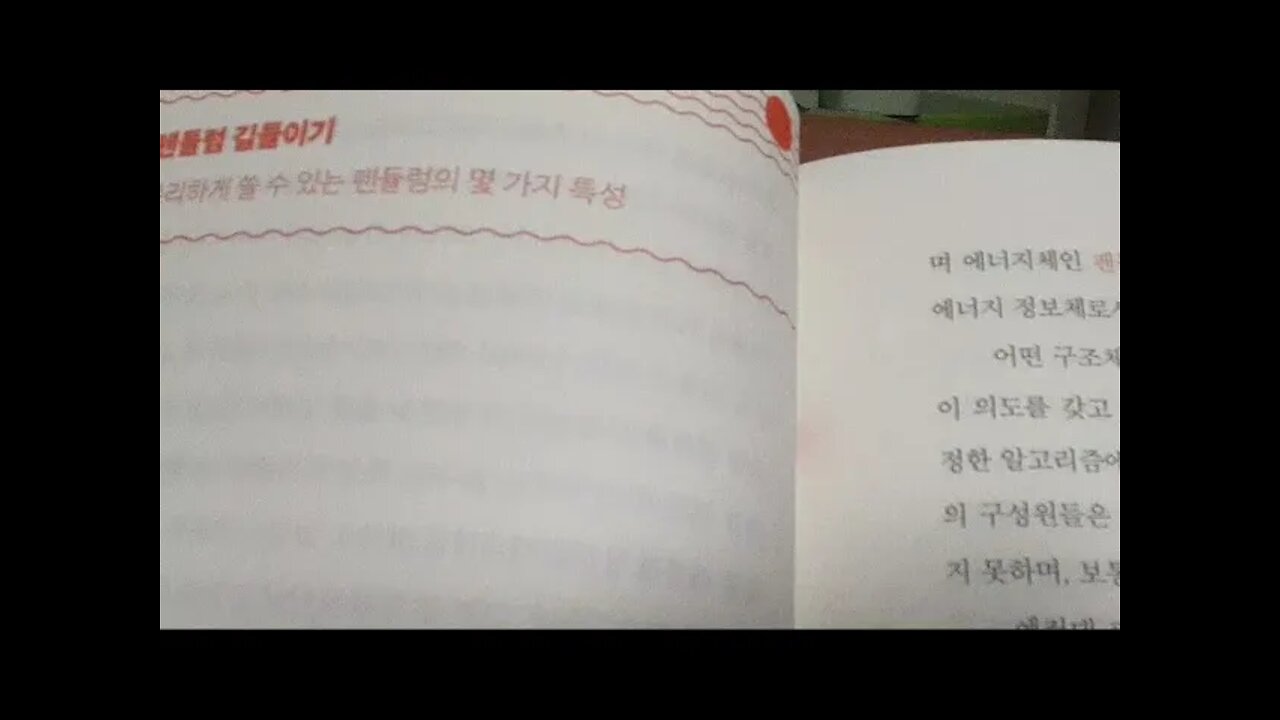 팬듈럼 길들이기
하게 쓸 수 있는 팬듈럼의 몇 가지 특성
며 에너지체인
에너지 정보체로서
어떤 구조체
이 의도를 갖고
정한 알고리즘에
의 구성원들은
지 못하며, 보통